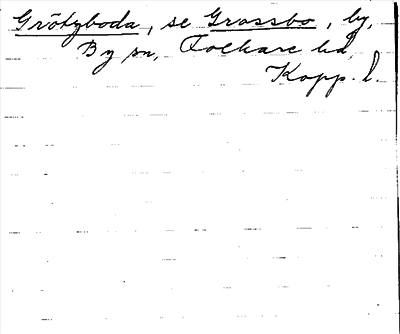 Grötzboda, se Grossbo, by,
By sn, Folkare hd,
Kopp. l.